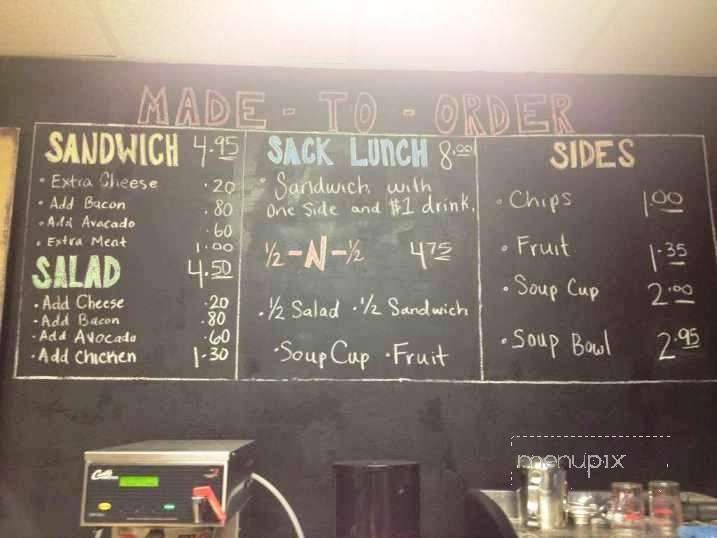 MADE-TO-ORDER
SANDWICH 4.95
• Extra Cheese .20
• Add Bacon .80
• Add Avacado .60
• Extra Meat 1.00
SALAD 4.50
• Add Cheese .20
• Add Bacon .80
• Add Avocado .60
• Add Chicken 1.30
SACK LUNCH 8.00
• Sandwich with
one Side and $1 drink.
½-N-½ 4.75
• ½ Salad • ½ Sandwich
• Soup Cup • Fruit
SIDES
• Chips 1.00
• Fruit 1.35
• Soup Cup 2.00
• Soup Bowl 2.95
menupix